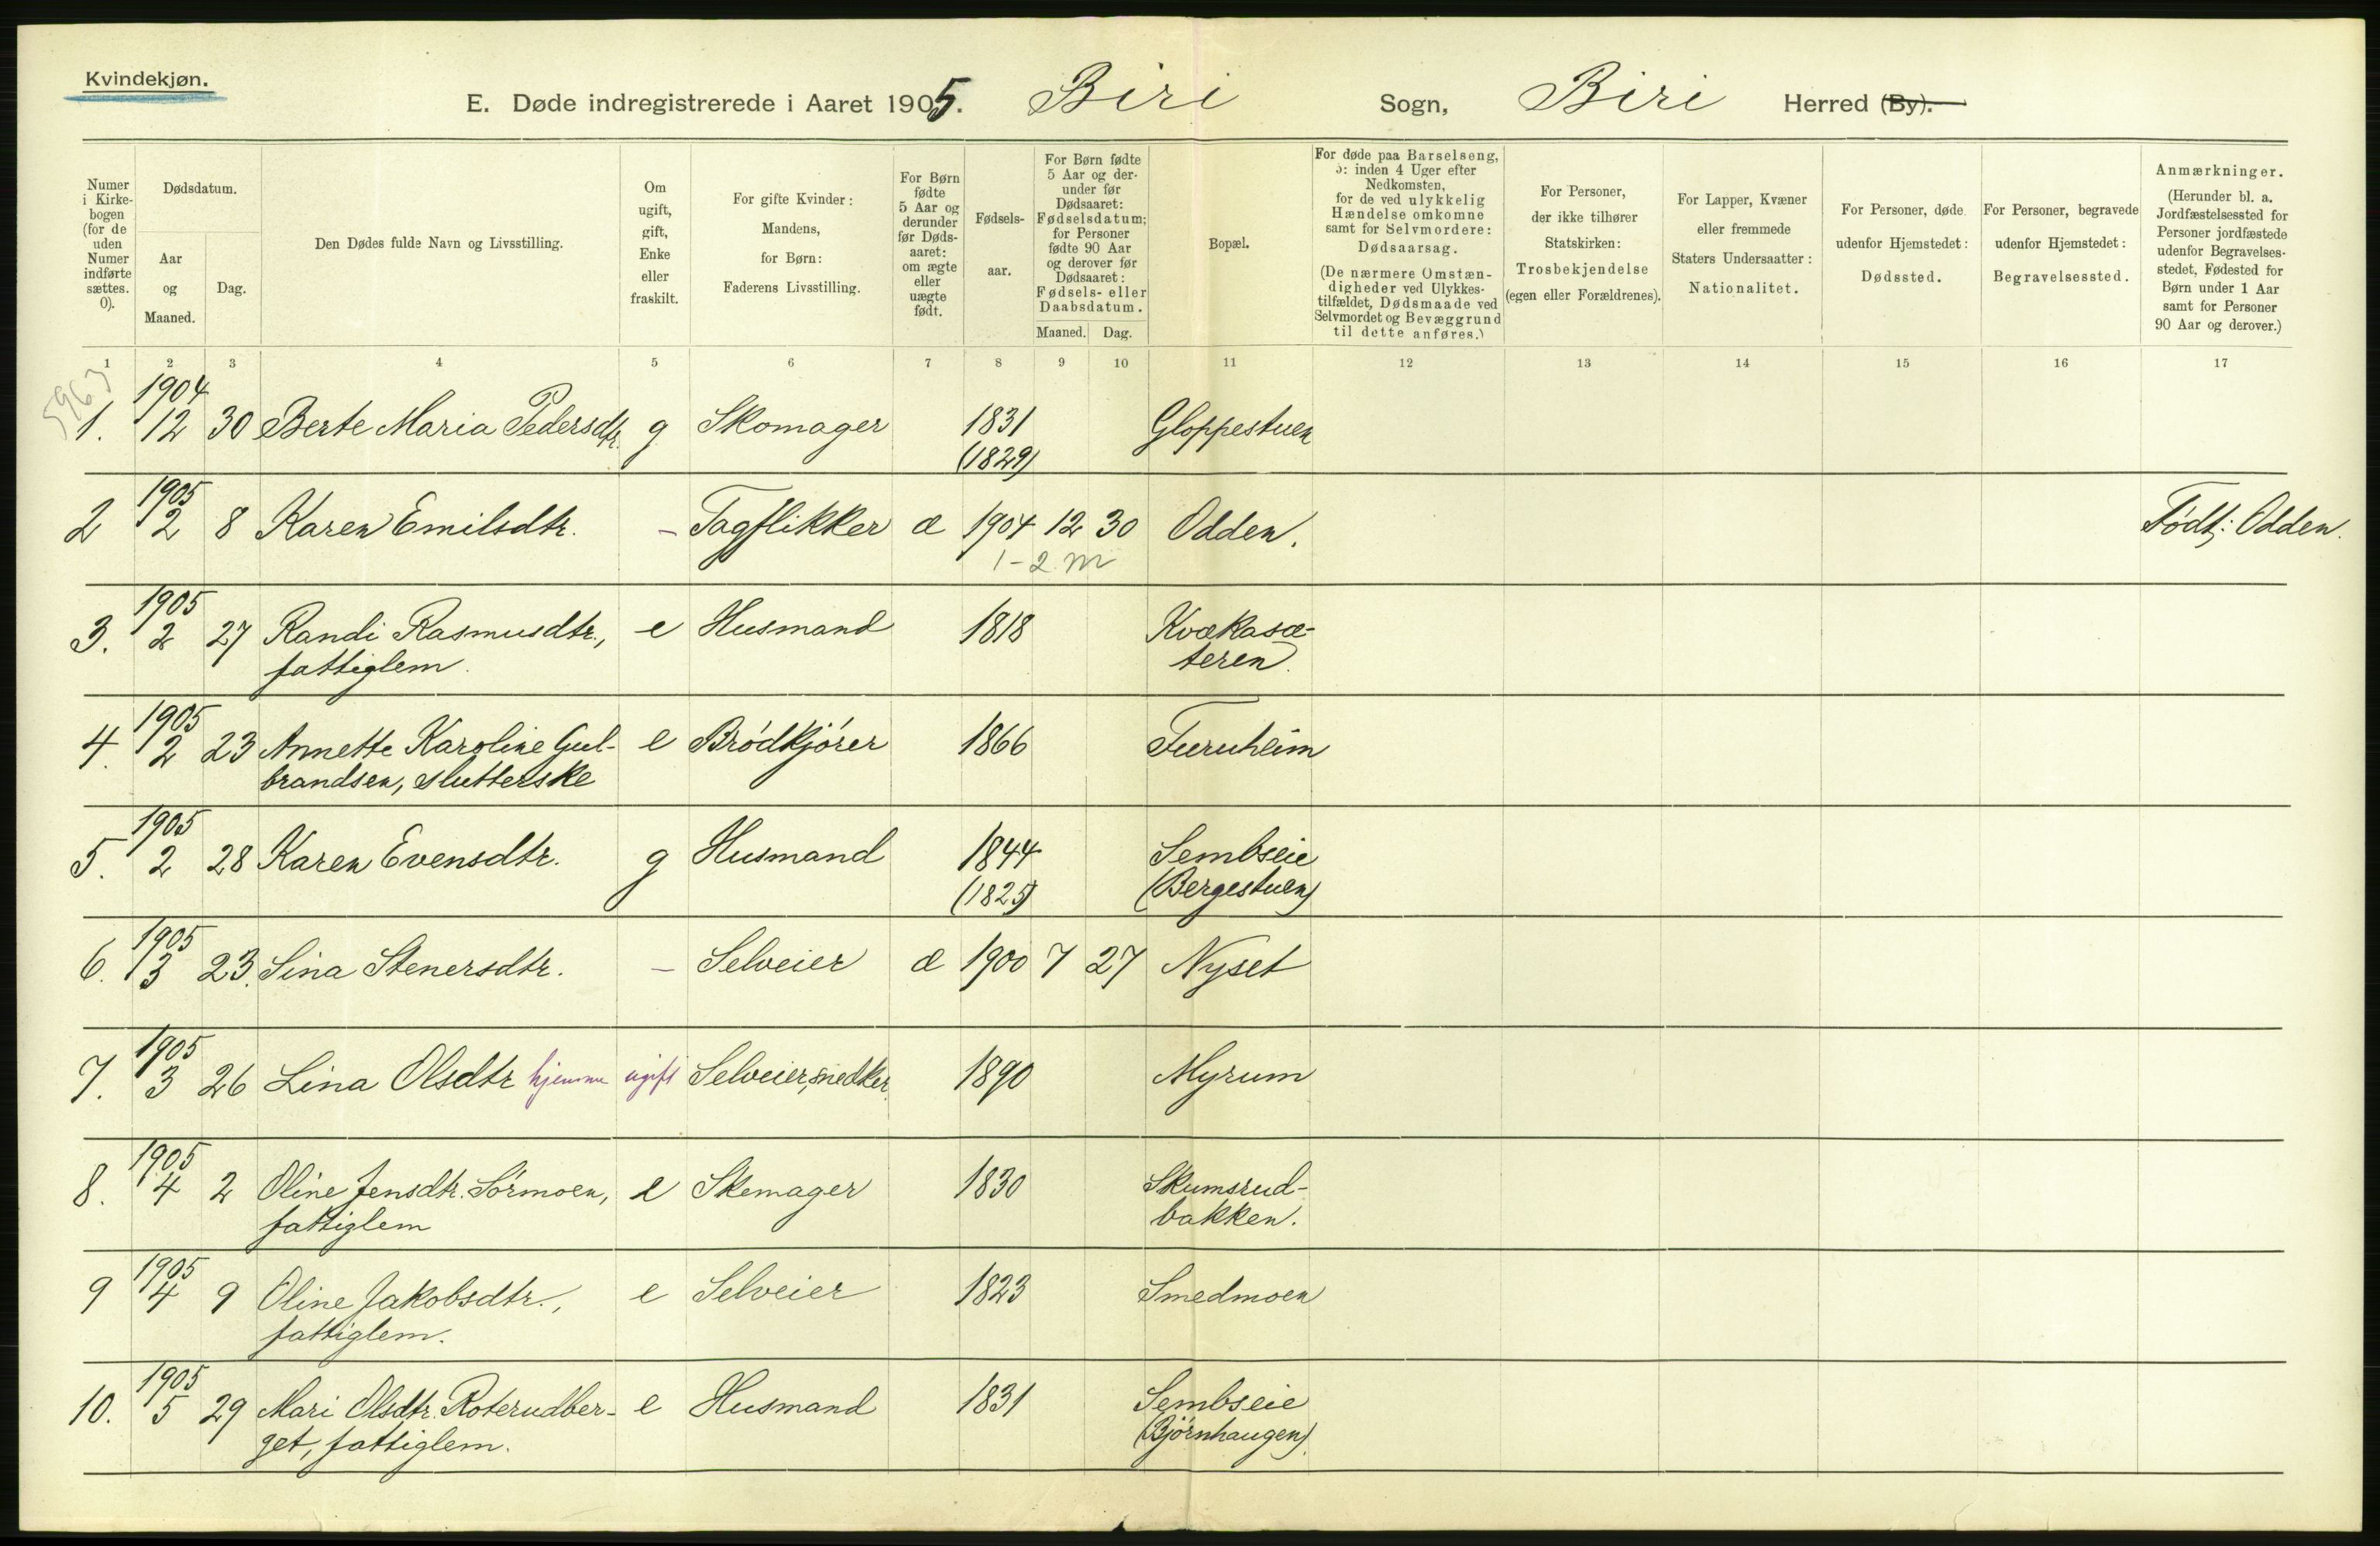 Kvindekjøn.
E. Døde indregistrerede i Aaret 1905. Biri Sogn, Biri Herred (By).
Numer i Kirkebogen (for de uden Numer indførte sættes. 0).
Dødsdatum.
Aar og Maaned.
Dag.
Den Dødes fulde Navn og Livsstilling.
Om ugift, gift, Enke eller fraskilt.
For gifte Kvinder: Mandens, for Børn: Faderens Livsstilling.
For Børn fødte 5 Aar og derunder før Dødsaaret: om ægte eller uægte født.
Fødselsaar.
For Børn fødte 5 Aar og derunder før Dødsaaret: Fødselsdatum; for Personer fødte 90 Aar og derover før Dødsaaret: Fødsels- eller Daabsdatum.
Maaned. Dag.
Bopæl.
For døde paa Barselseng, ɔ: inden 4 Uger efter Nedkomsten, for de ved ulykkelig Hændelse omkomne samt for Selvmordere: Dødsaarsag.
(De nærmere Omstændigheder ved Ulykkestilfældet, Dødsmaade ved Selvmordet og Bevæggrund til dette anføres.)
For Personer, der ikke tilhører Statskirken: Trosbekjendelse (egen eller Forældrenes).
For Lapper, Kvæner eller fremmede Staters Undersaatter: Nationalitet.
For Personer, døde udenfor Hjemstedet: Dødssted.
For Personer, begravede udenfor Hjemstedet: Begravelsessted.
Anmærkninger.
(Herunder bl. a. Jordfæstelsessted for Personer jordfæstede udenfor Begravelsesstedet, Fødested for Børn under 1 Aar samt for Personer 90 Aar og derover.)
1 2 3 4 5 6 7 8 9 10 11 12 13 14 15 16 17
5963
1904
1. 12 30 Berte Maria Pedersdtr. g Skomager 1831 Gloppestuen
(1829)
1905
2 2 8 Karen Emilsdtr. - Tagflikker æ 1904 12 30 Odden. Født: Odden.
1-2 m
1905
3. 2 27 Randi Rasmusdtr., e Husmand 1818 Kvækasæ-
fattiglem. teren.
1905
4. 2 23 Annette Karoline Gul- e Brødkjører 1866 Furuheim
brandsen, slutterske
1905
5. 2 28 Karen Evensdtr. g Husmand 1844 Sembseie
(1825) (Bergestuen)
1905
6. 3 23. Sina Stenersdtr. - Selveier æ 1900 7 27 Nyset
1905
7. 3 26 Lina Olsdtr hjemme ugift Selveier, snedker. 1890 Myrum
1905
8. 4 2 Oline Jensdtr. Sørmoen, e Skomager 1830 Skumsrud-
fattiglem bakken.
1905
9 4 9 Oline Jakobsdtr., e Selveier 1823 Smedmoen
fattiglem.
1905
10. 5 29 Mari Olsdtr. Roterudber- e Husmand 1831 Sembseie
get, fattiglem. (Bjørnhaugen).